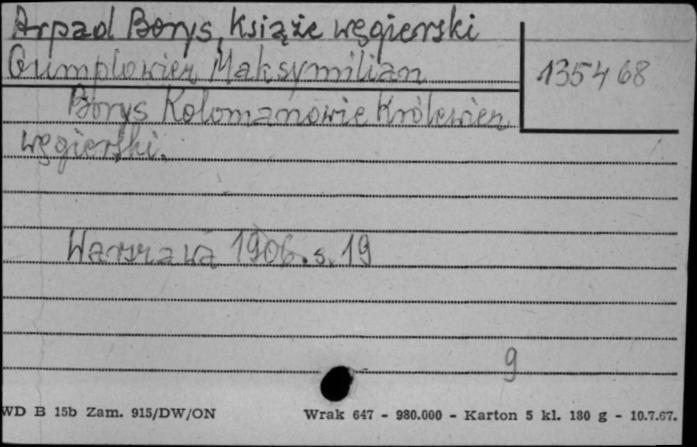 Arpad Borys, książe węgierski
Gumplowicz Maksymilian
135468
Borys Kolomanowic Królewicz
węgierski.
Warszawa 1906. s. 19
9
WD B 15b Zam. 915/DW/ON Wrak 647 - 980.000 - Karton 5 kl. 180 g - 10.7.67.